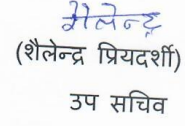 शैलेन्द्र
(शैलेन्द्र प्रियदर्शी)
उप सचिव